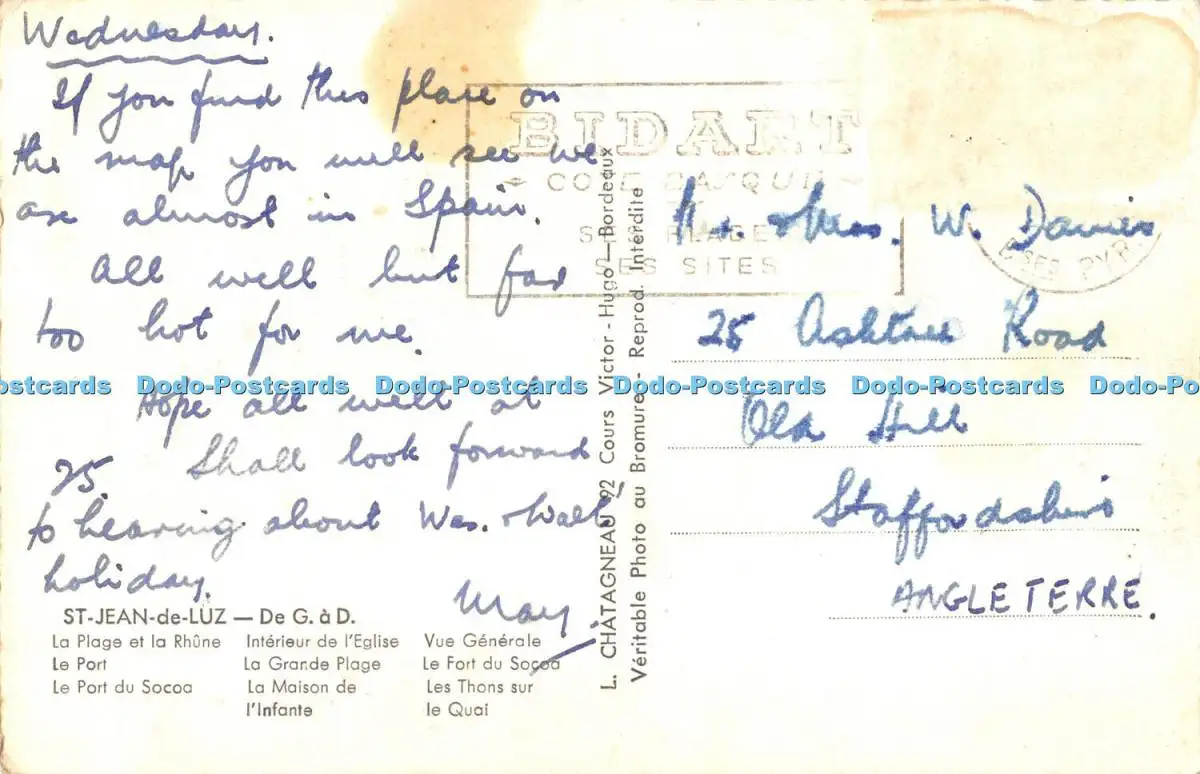 Wednesday.
If you find this place on
the map you will see we
are almost in Spain.
All well but far
too hot for me.
Hope all well at
25. Shall look forward
to hearing about Wes. & Walt
holiday.
May.
ST-JEAN-de-LUZ — De G. à D.
La Plage et la Rhûne Intérieur de l'Eglise Vue Générale
Le Port La Grande Plage Le Fort du Socoa
Le Port du Socoa La Maison de Les Thons sur
l'Infante le Quai
L. CHATAGNEAU 92 Cours Victor-Hugo — Bordeaux
Véritable Photo au Bromure - Reprod. Interdite
BIDART
COTE BASQUE
SES PLAGES
SES SITES
PYR.
Mr. & Mrs. W. Davies
25 Ashtree Road
Old Hill
Staffordshire
ANGLETERRE.
Dodo-Postcards Dodo-Postcards Dodo-Postcards Dodo-Postcards Dodo-Postcards Dodo-Postcards